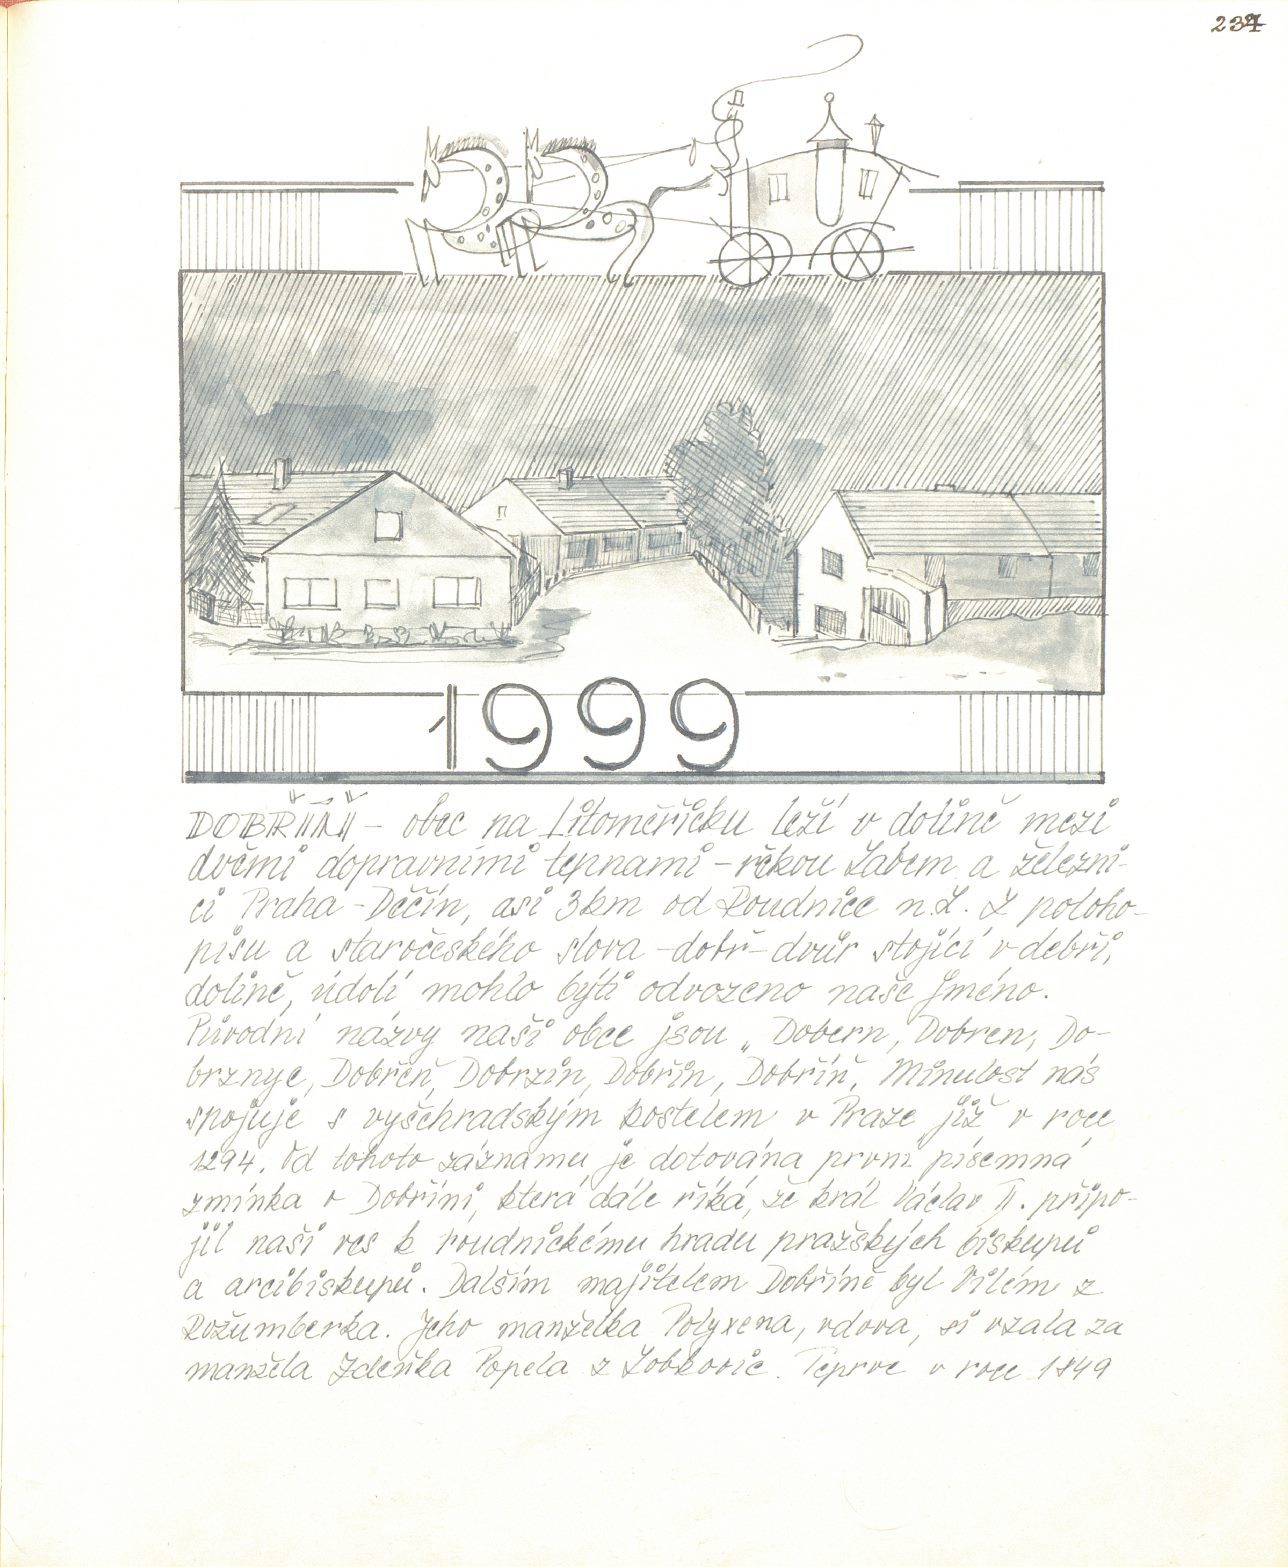 234
1999
DOBŘÍŇ – obec na Litoměřicku leží v dolině mezi
dvěmi dopravními tepnami – řekou Labem a železni-
cí Praha – Děčín, asi 3 km od Roudnice n.L. Z poloho-
pisu a staročeského slova – dobř – dvůr stojící v debři,
dolině, údolí mohlo býti odvozeno naše jméno.
Původní názvy naší obce jsou „ Dobern, Dobren, Do-
brznye, Dobřěň, Dobrzin, Dobřin, Dobříň, Minulost nás
spojuje s vyšehradským kostelem v Praze již v roce
1294. Od tohoto záznamu je dotována první písemná
zmínka o Dobříni, která dále říká, že král Václav II. připo-
jil naši ves k roudnickému hradu pražských biskupů
a arcibiskupů. Dalším majitelem Dobříně byl Vilém z
Rožumberka. Jeho manželka Polyxena, vdova, si vzala za
manžela Zdeňka Popela z Lobkovic. Teprve v roce 1849